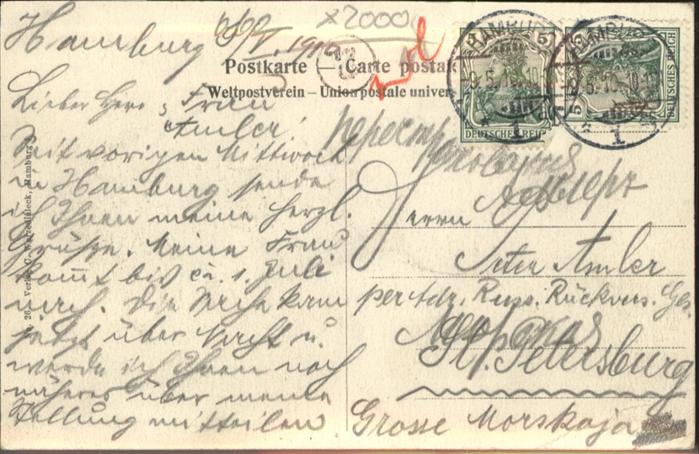 x2000
Hamburg 8/V. 1910
Postkarte — Carte postale
Weltpostverein – Union postale univers
Lieber Herr & Frau
Amler!
Seit vorigen Mittwoch
in Hamburg sende
ich Ihnen meine herzl.
Grüße. Meine Frau
kommt bis ca. 1. Juli
nach. Die Sache kam
jetzt über Nacht u.
werde ich Ihnen noch
näheres über meine
Stellung mitteilen
Verlag
Hamburg
HAMBURG
9.5.10
1
DEUTSCHES REICH
5
HAMBURG
9.5.10
1
DEUTSCHES REICH
Амлеръ
Herrn
Peter Amler
per Adr. Russ. Rückvers. Ges.
Морская
St. Petersburg
Grosse Morskaja